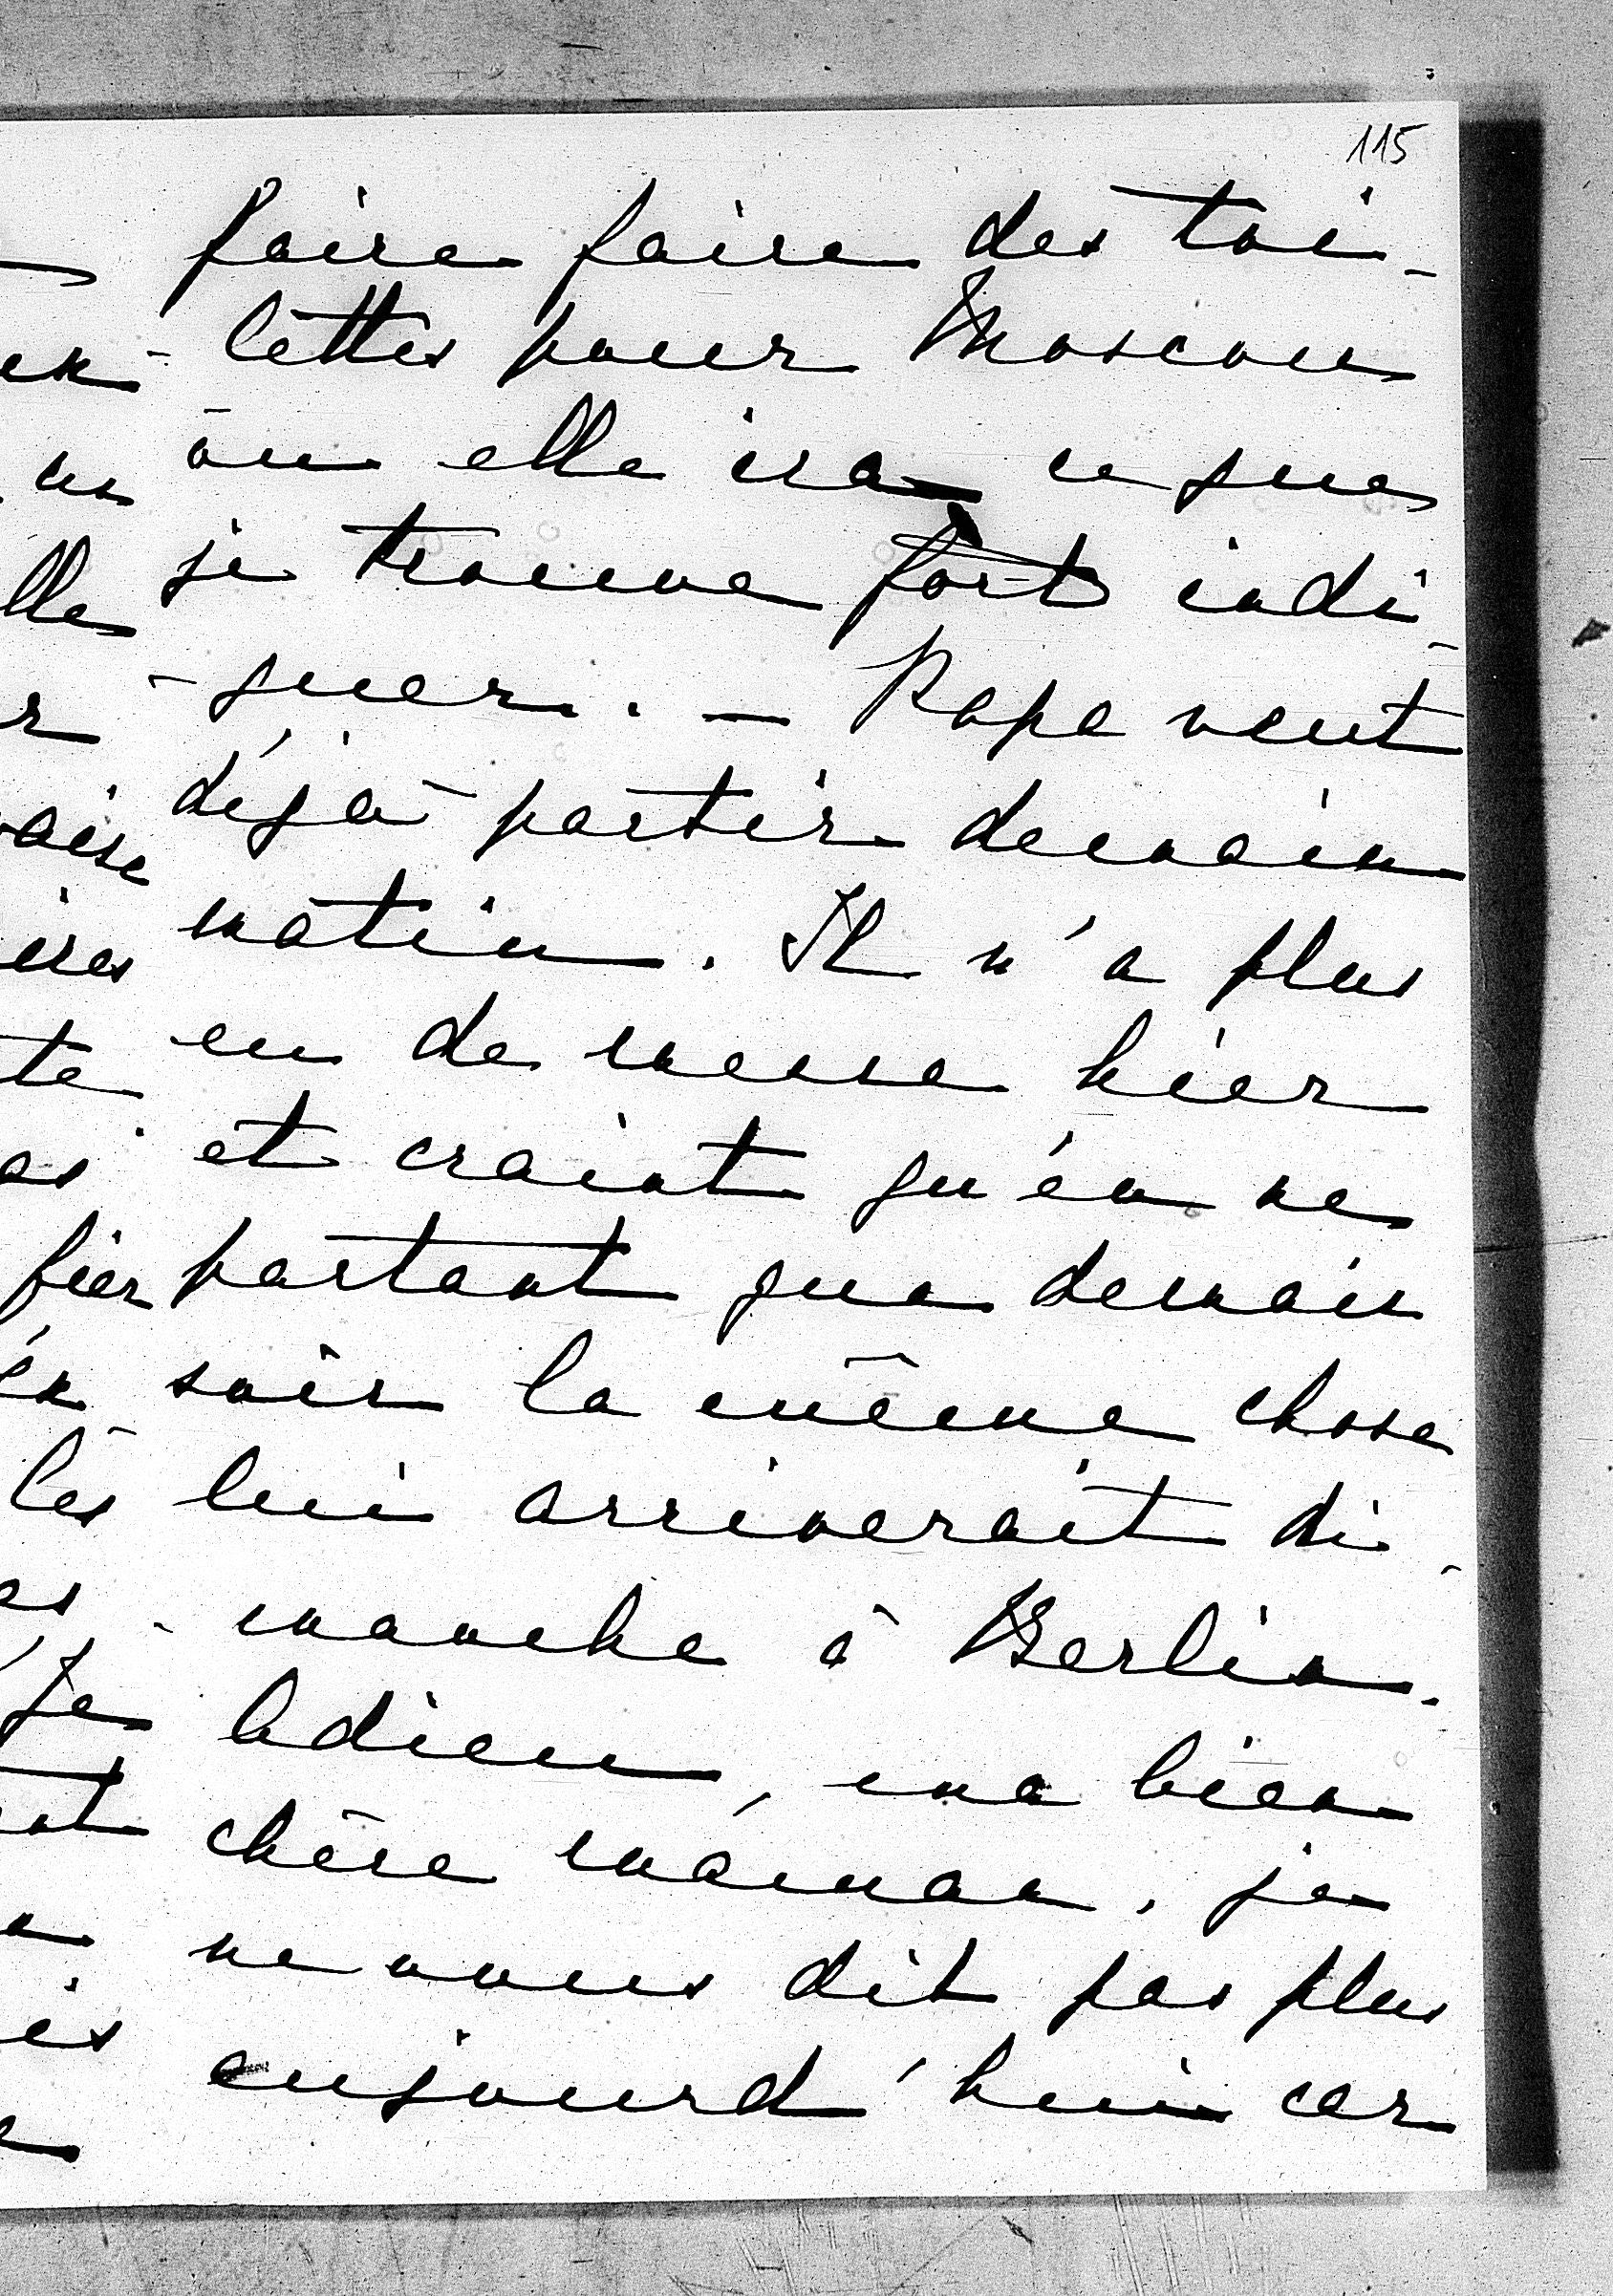 115
faire faire des toi-
-lettes pour Moscou
où elle ira ce que
je trouve fort indi-
-quer. — Papa veut
déjà partir demain
matin. Il n'a plus
eu de messe hier
et craint qu'en ne
partant que demain
soir la même chose
lui arriverait di-
-manche à Berlin.
Adieu, ma bien
chère maman, je
ne vous dit pas plus
aujourd'hui car